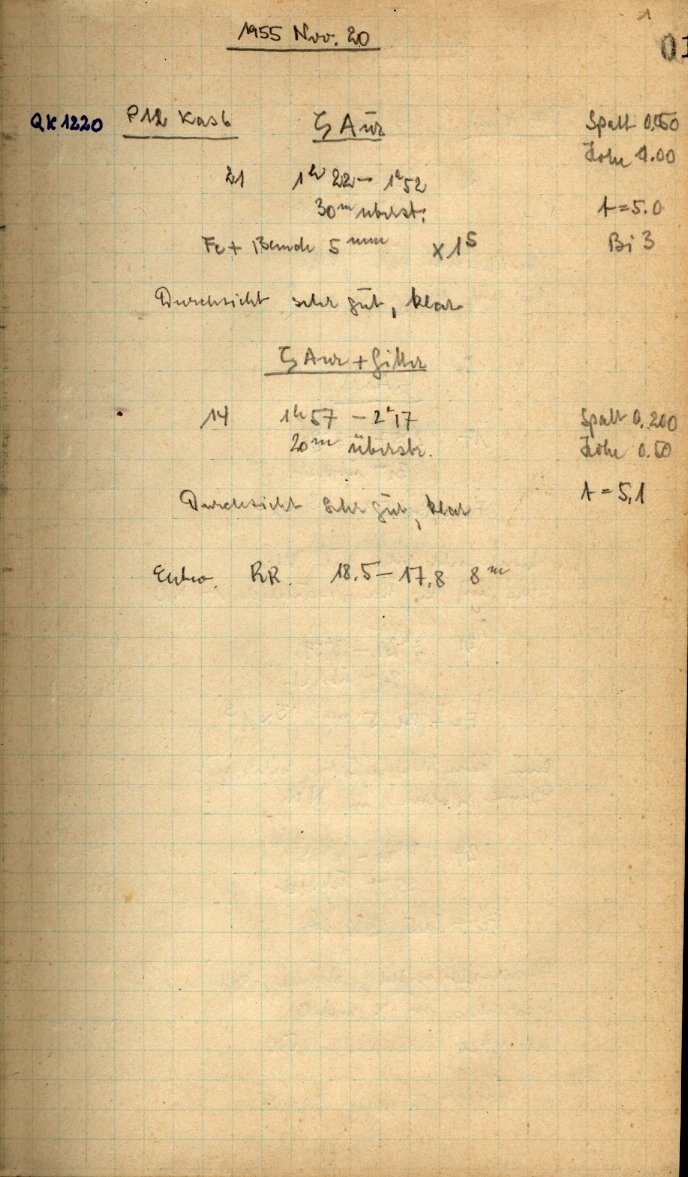 1
1955 Nov. 20
01
QK1220 P12 Kas6 ζ Aur Spalt 0.050
Höhe 1.00
21 1ʰ22 – 1ʰ52
30ᵐ überstr. t=5.0
Fe + Blende 5 mm x 1ˢ Bi 3
Durchsicht sehr gut, klar
ζ Aur + Gitter
14 1ʰ57 – 2ʰ17 Spalt 0.200
20ᵐ überstr. Höhe 0.50
Durchsicht sehr gut, klar t=5,1
RR. 18.5 – 17,8 8ᵐ